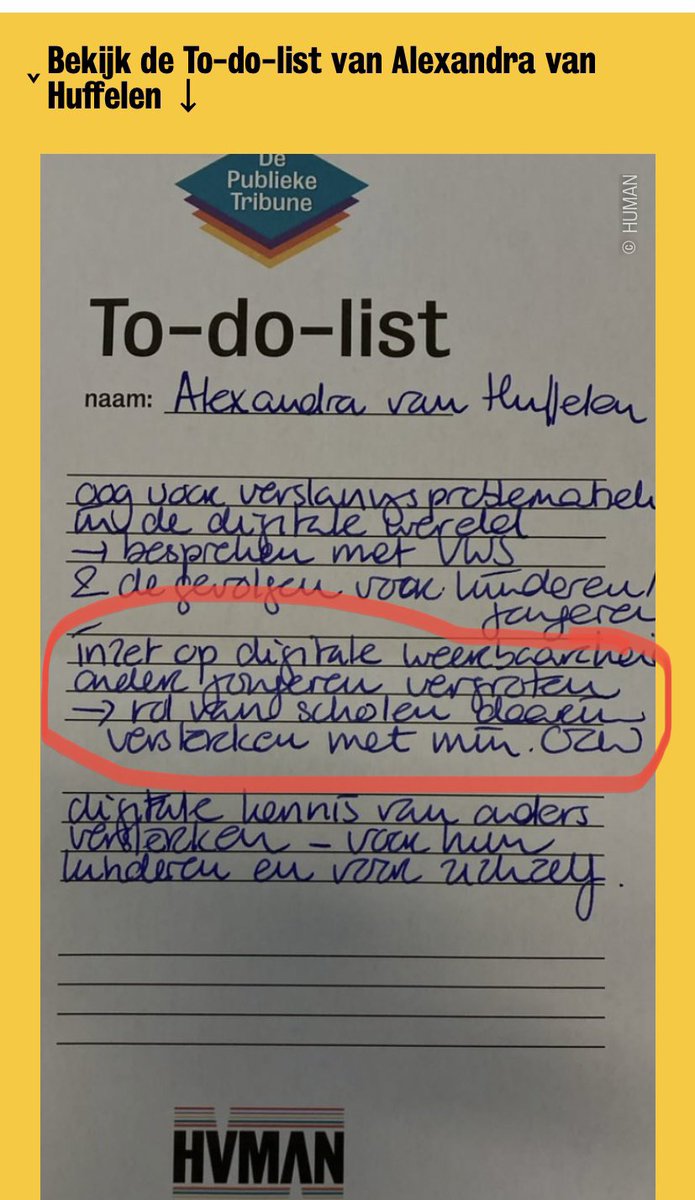 Bekijk de To-do-list van Alexandra van
Huffelen ↓
De
Publieke
Tribune
© HUMAN
To-do-list
naam: Alexandra van Huffelen
oog voor verslavingsproblematiek
in de digitale wereld
→ bespreken met VWS
& de gevolgen voor kinderen/
jongeren
inzet op digitale weerbaarheid
onder jongeren vergroten
→ rol van scholen daarin
versterken met min. OCW
digitale kennis van ouders
versterken – voor hun
kinderen en voor zichzelf.
HVMAN